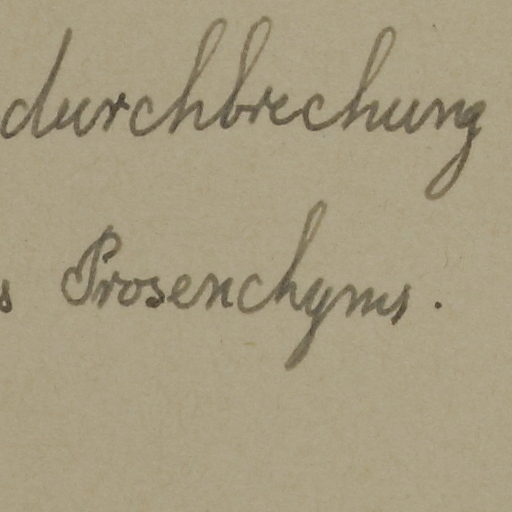 durchbrechung
s Prosenchyms.